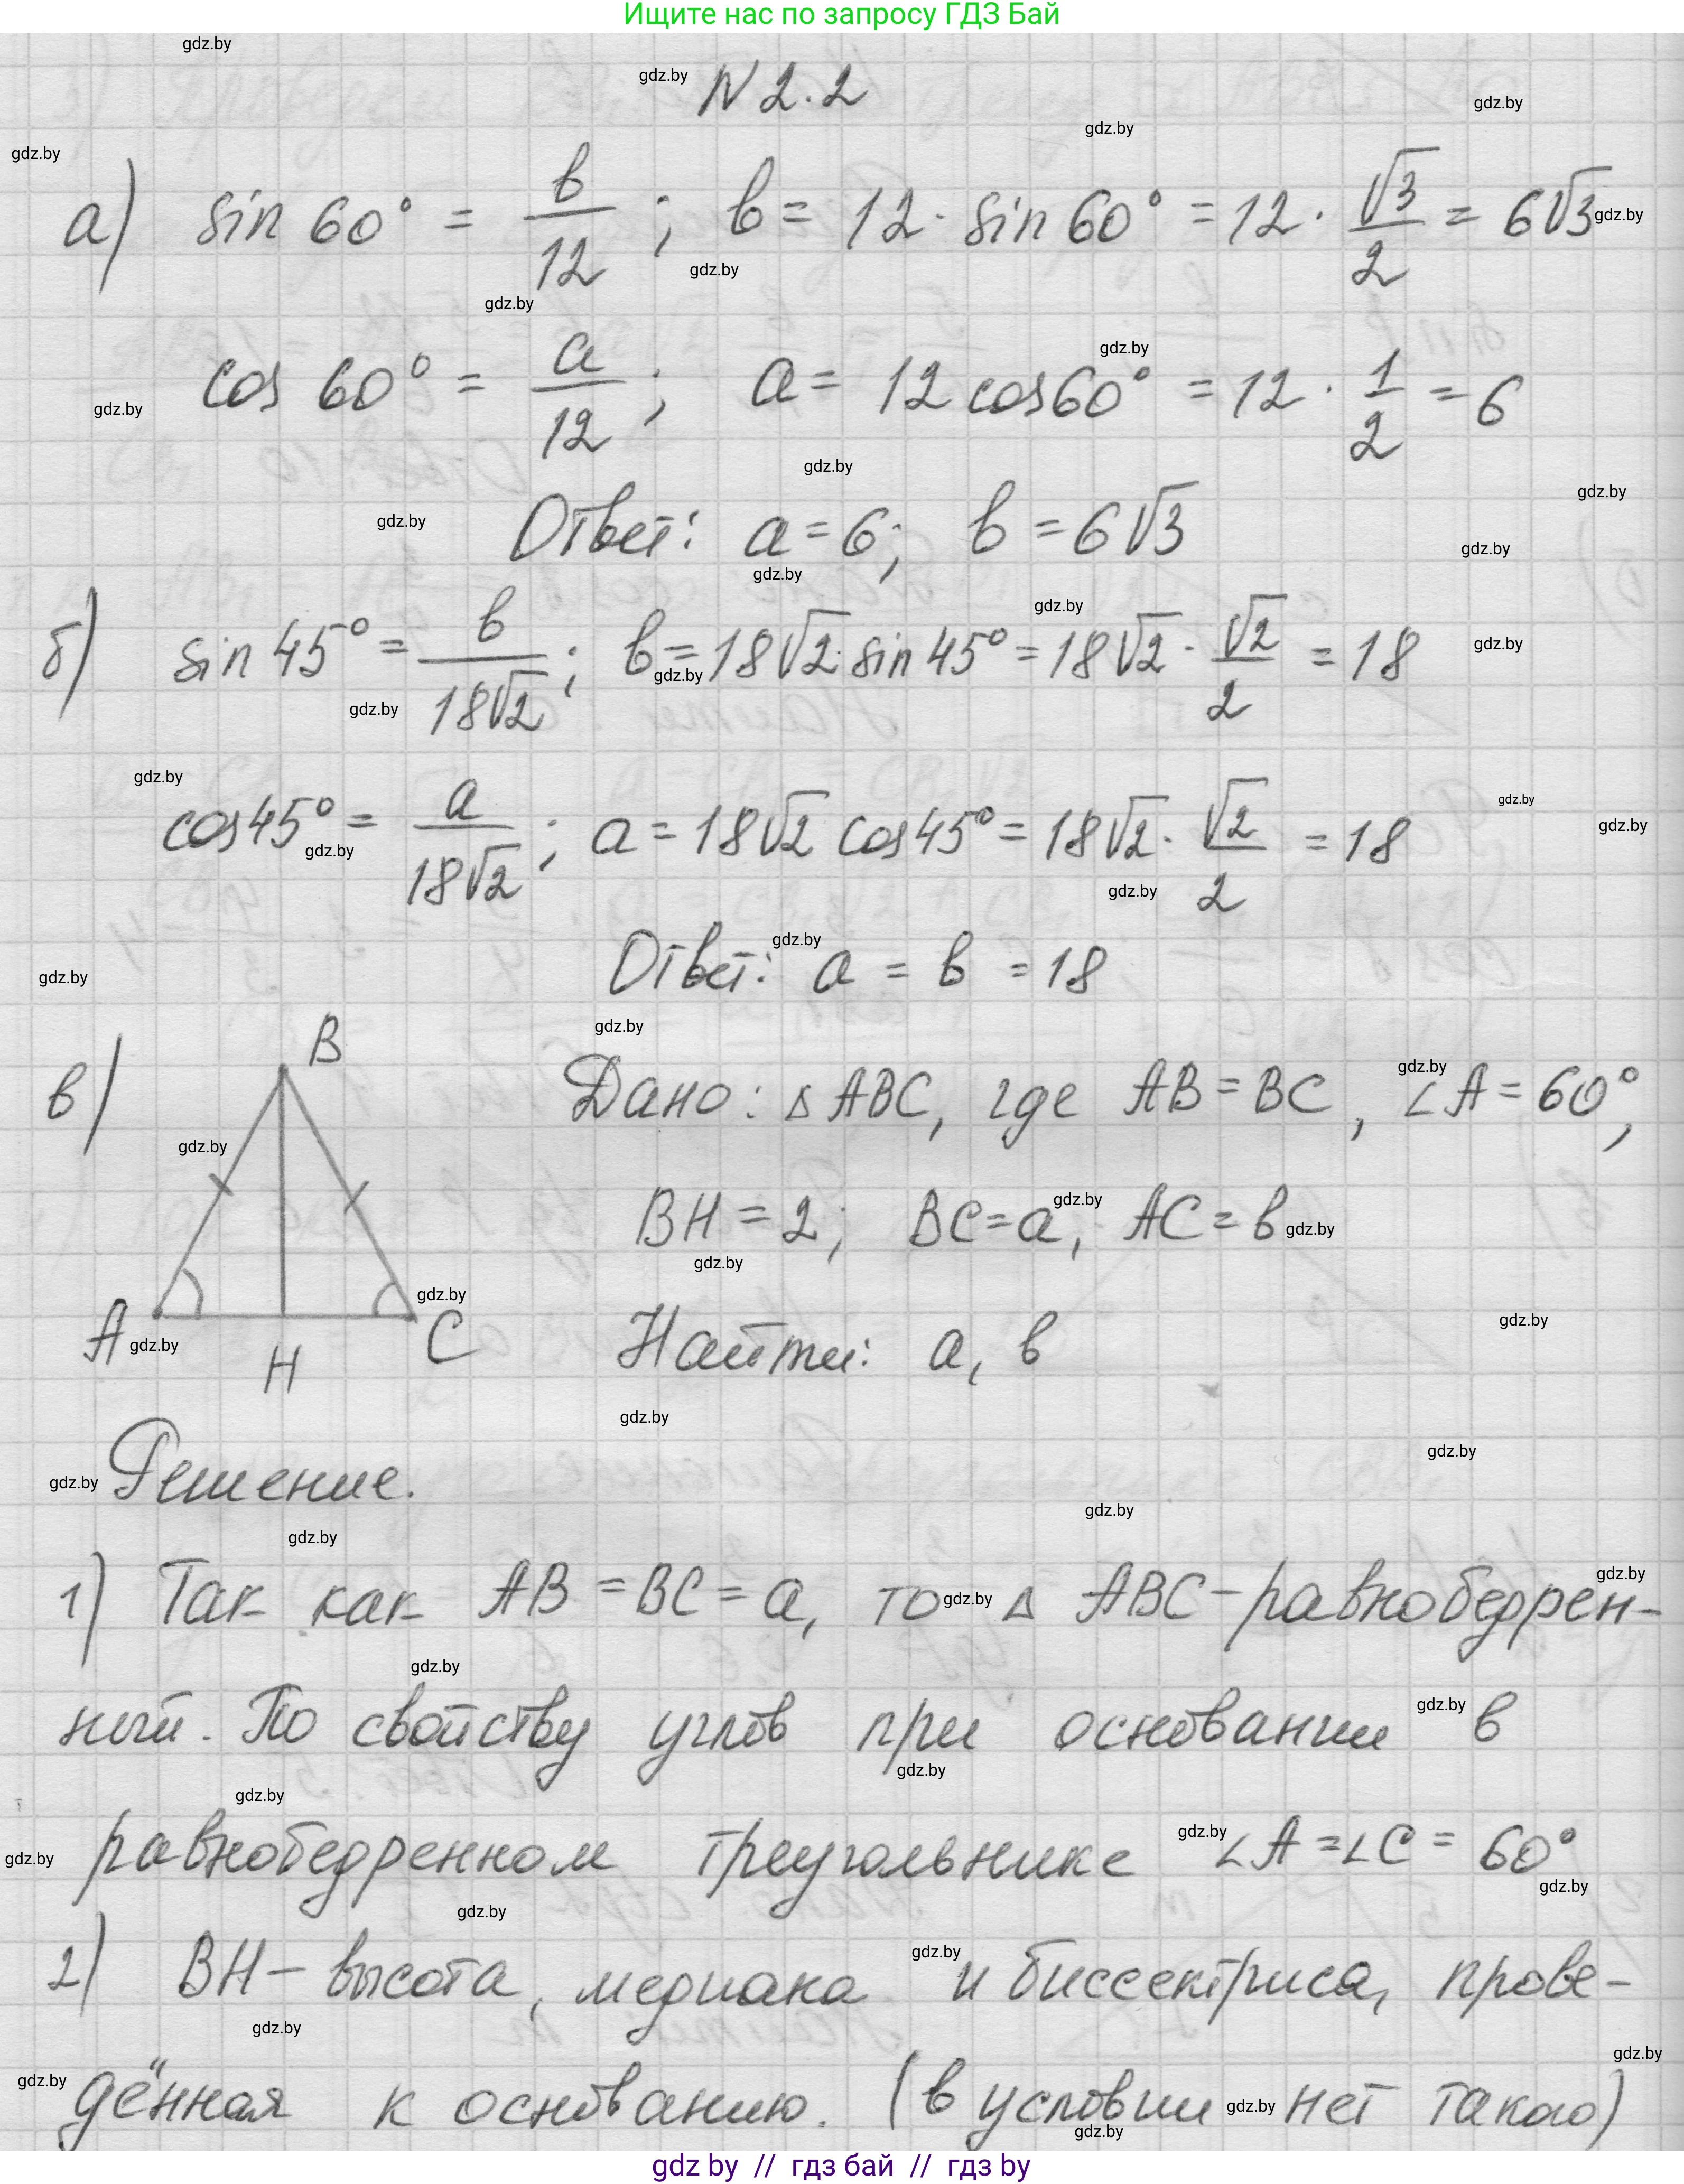 Ищите нас по запросу ГДЗ Бай
N 2.2
а) sin 60° = в/12; в = 12 · sin 60° = 12 · √3/2 = 6√3
cos 60° = а/12; а = 12 cos 60° = 12 · 1/2 = 6
Ответ: а = 6; в = 6√3
б) sin 45° = в/18√2; в = 18√2 · sin 45° = 18√2 · √2/2 = 18
cos 45° = а/18√2; а = 18√2 cos 45° = 18√2 · √2/2 = 18
Ответ: а = в = 18
в) B
A
H
C
Дано: △ ABC, где AB = BC, ∠A = 60°,
BH = 2; BC = а, AC = в
Найти: а, в
Решение.
1) Так как AB = BC = а, то △ ABC - равнобедрен-
ный. По свойству углов при основании в
равнобедренном треугольнике ∠A = ∠C = 60°
2) BH - высота, медиана и биссектриса, прове-
дённая к основанию. (в условии нет такого)
gdz by // гдз бай // гдз by